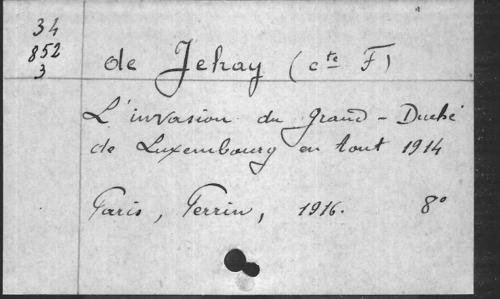 34
852
3
de Jehay (cte F)
L'invasion du Grand-Duché
de Luxembourg en Aout 1914
Paris, Perrin, 1916. 8°